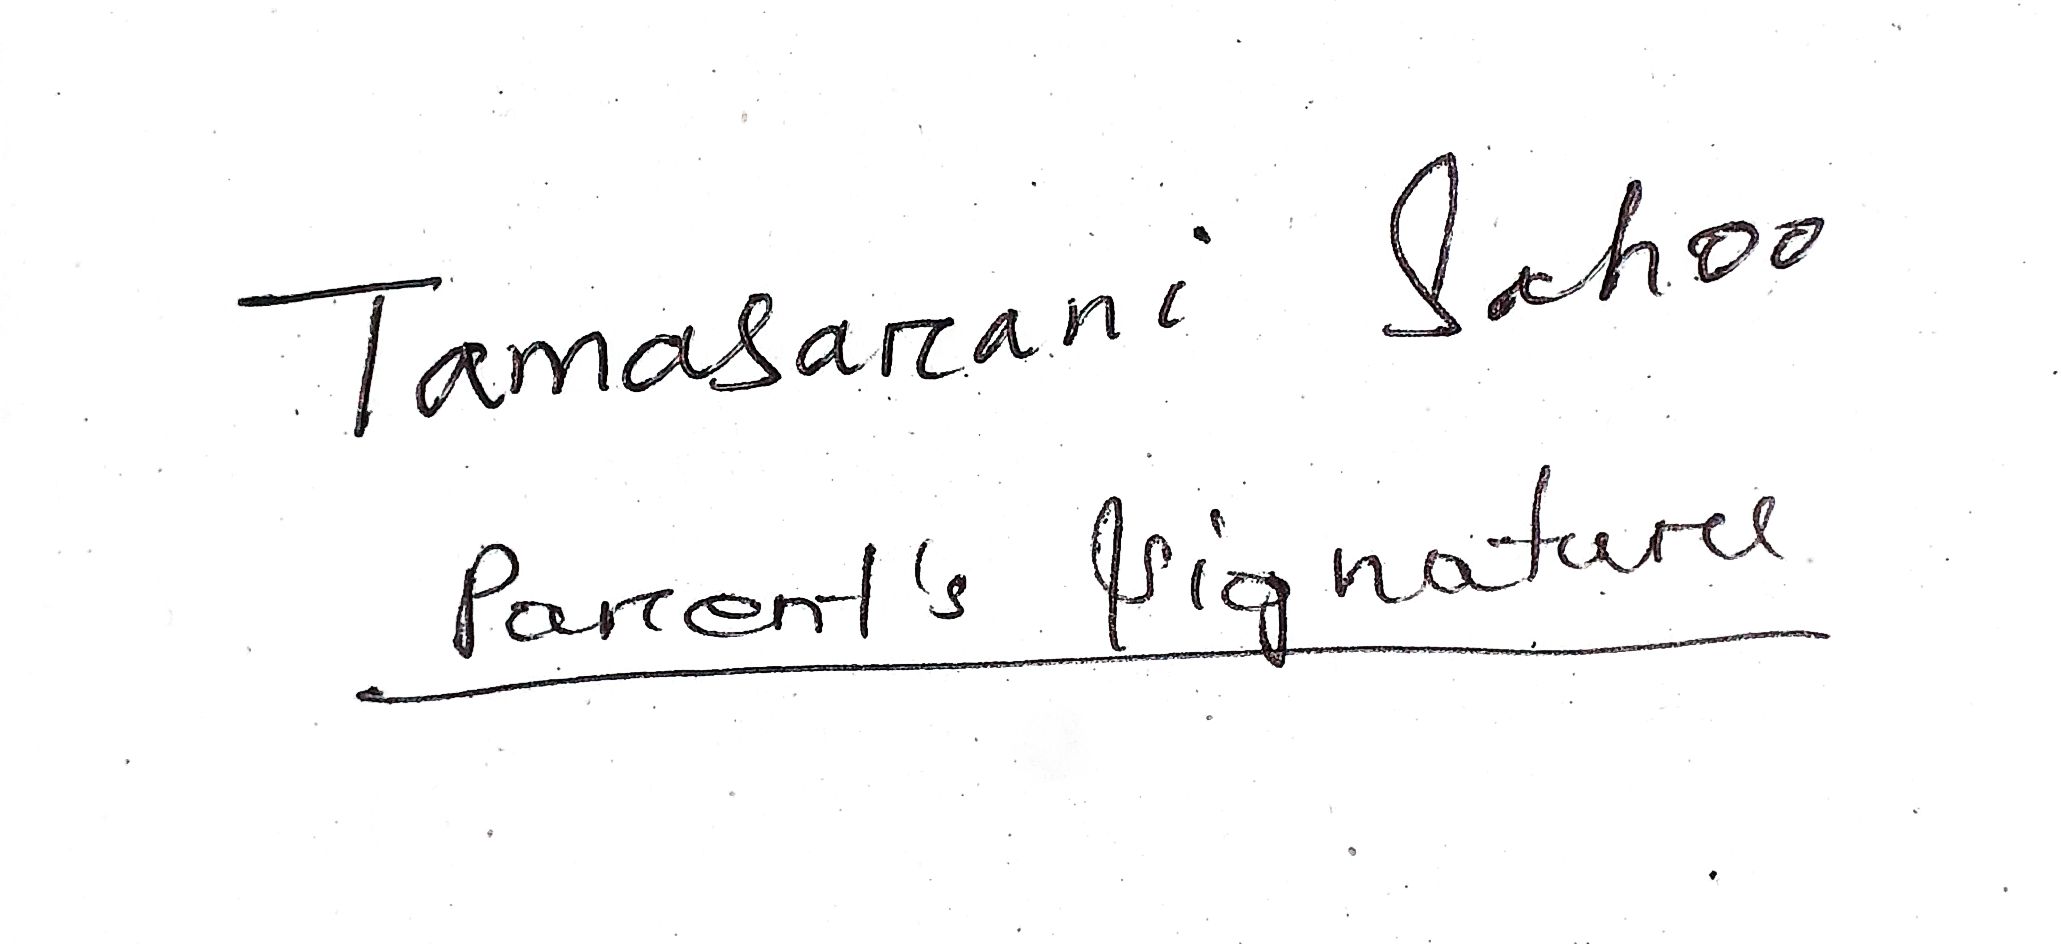 Tamasarani Sahoo
Parent's Signature